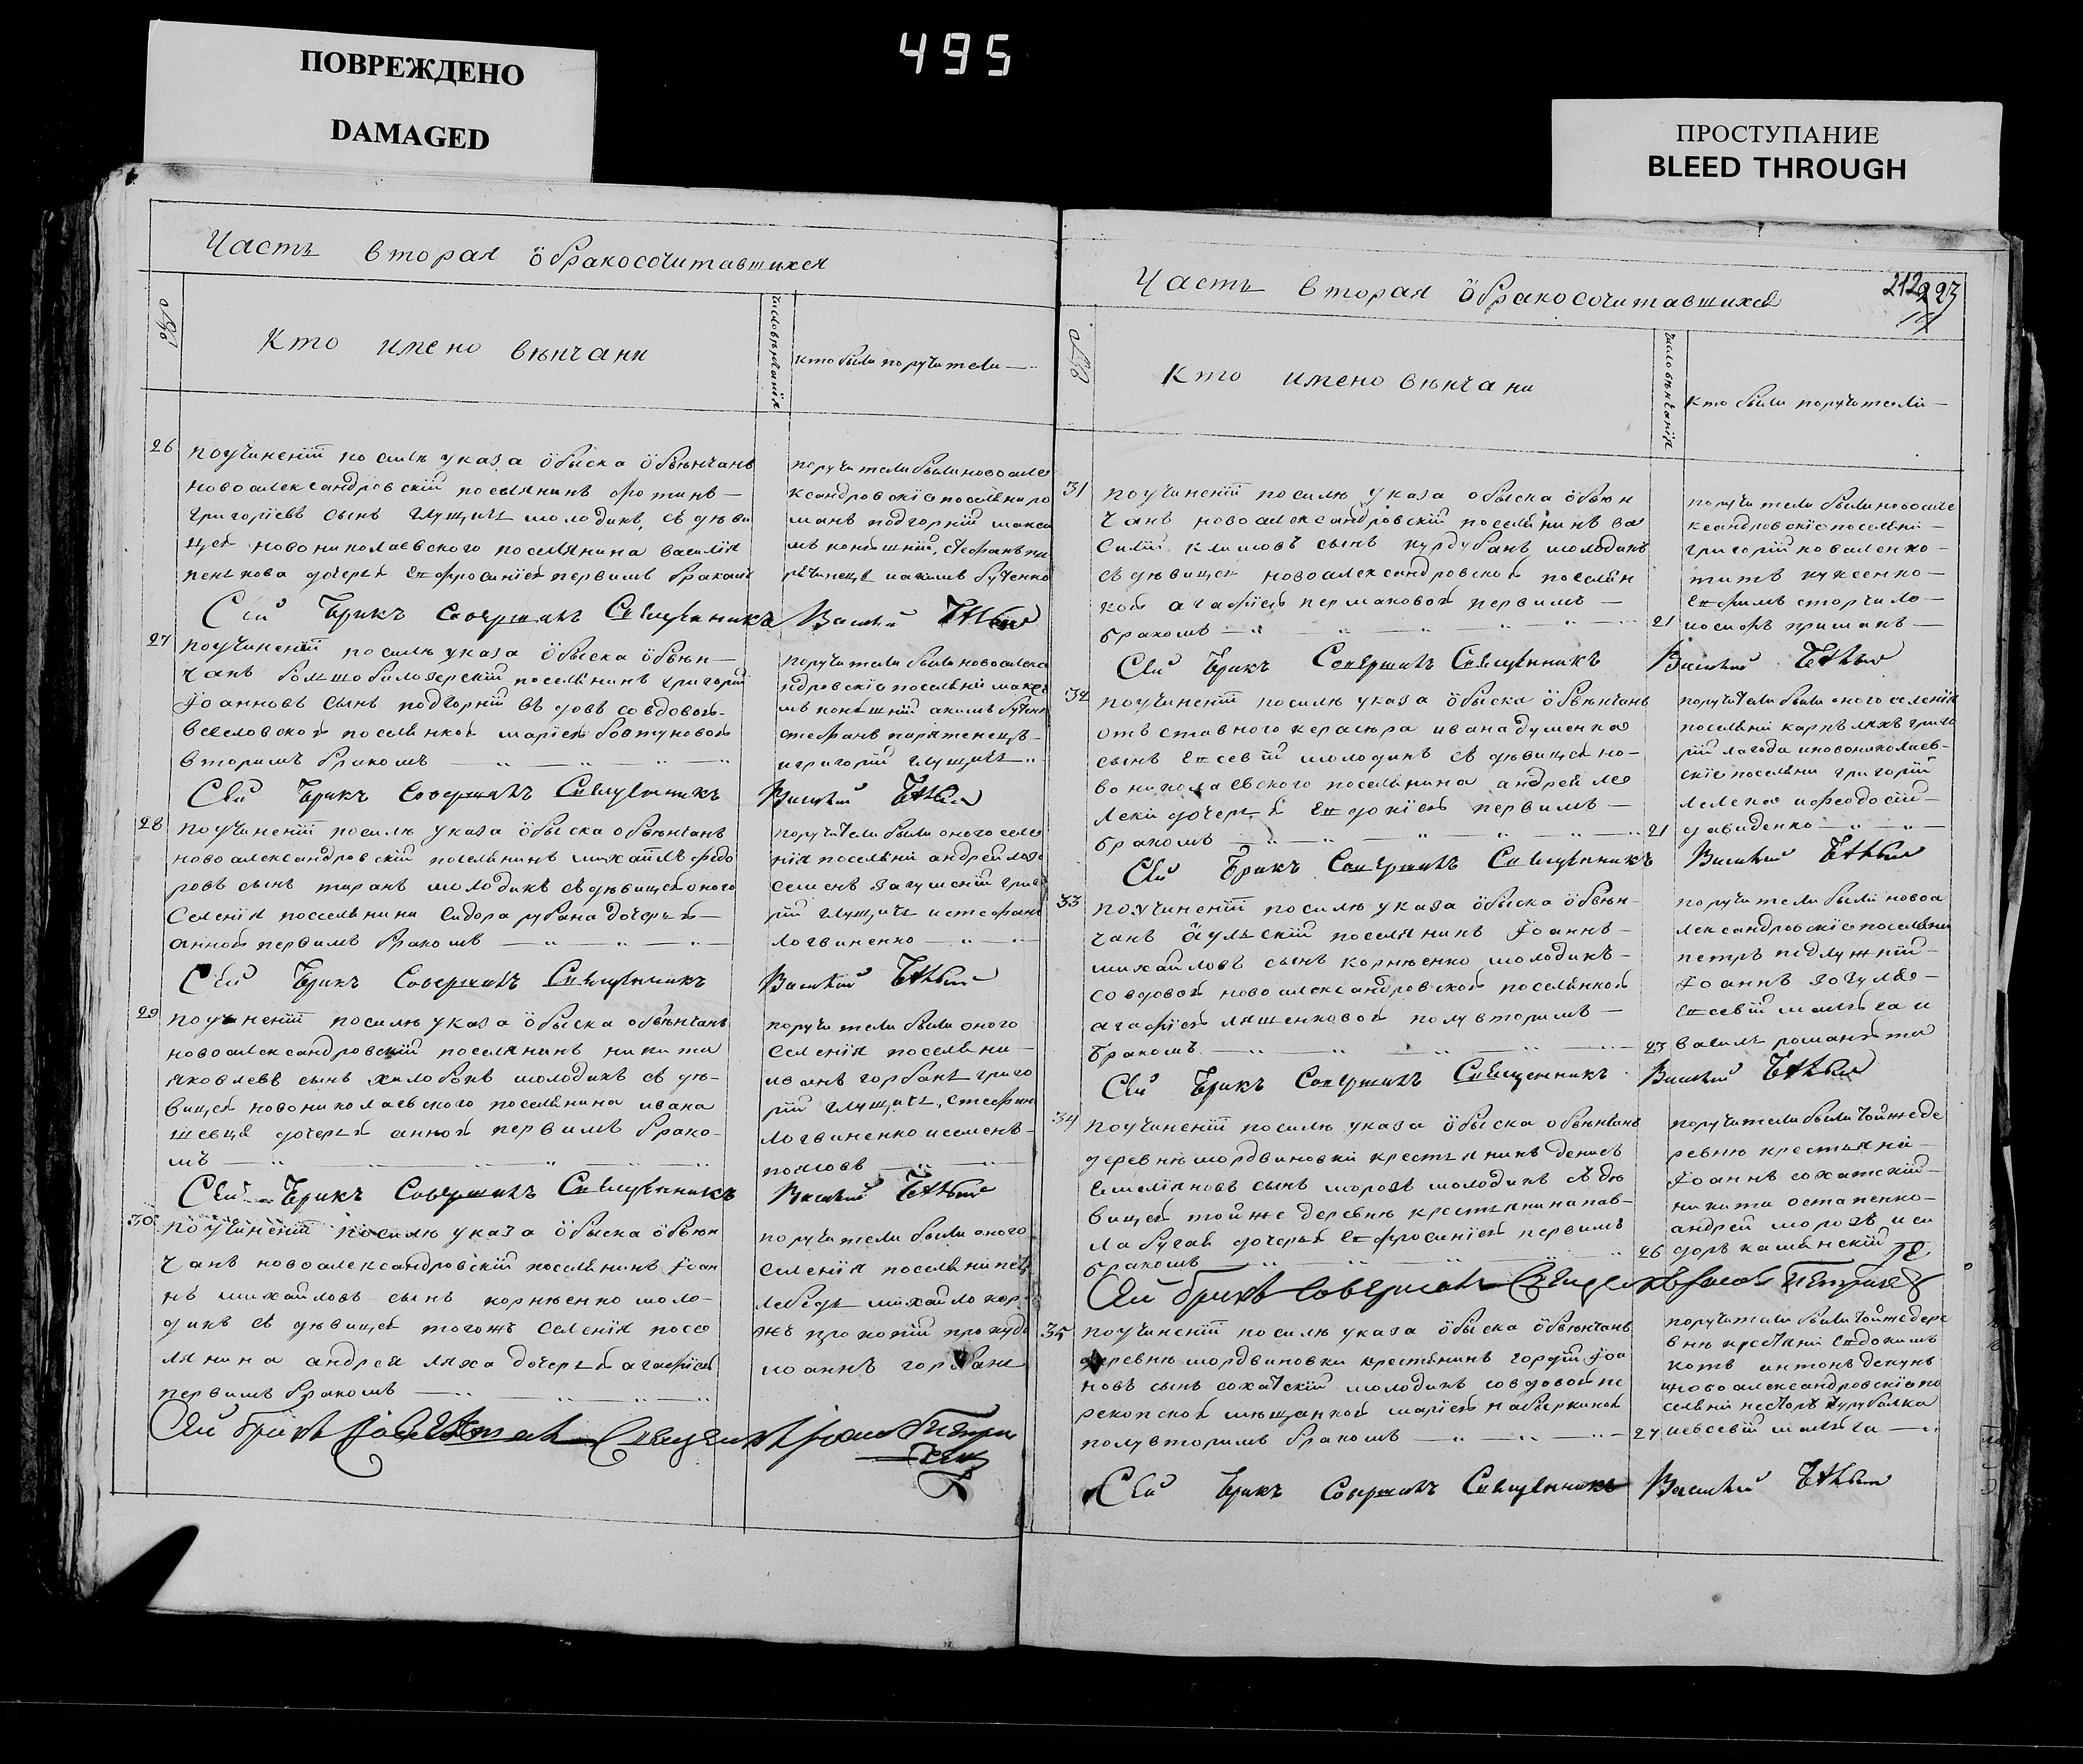 ПОВРЕЖДЕНО
DAMAGED
495
ПРОСТУПАНИЕ
BLEED THROUGH
Часть вторая обракосочитавшихся
№
Кто имено вѣнчани
число вѣнчания
кто были поручители
26
поучинении по силѣ указа обыска обвѣнчанъ
новоалександровский поселянинъ фотинъ
григориевъ сынъ глущичь молодикъ, съ дѣви
цей новониколаевского поселянина василия
пенькова дочерью Евфросиниею первимъ бракомъ
поручители были новоалек
ксандровские поселяни ро
манъ подгорний макси
мъ конюшний, стефанъ пи
Сей бракъ совершалъ Священникъ Василий
27
поучинении по силѣ указа обыска обвѣн
чанъ болшобилозерский поселянинъ григорий
Иоанновъ сынъ подгорний въ довъ со вдовою
веселовскою поселянкою мариею бовтуновою
вторимъ бракомъ
поручители были новоалекса
ндровские поселяни макси
мъ конюшний акимъ буценк
стефанъ пирятенецъ
и григорий глущичь
Сей бракъ совершалъ Священникъ Василий
28
поучинении по силѣ указа обыска обвѣнчанъ
новоалександровский поселянинъ михаилъ федо
ровъ сынъ таранъ молодикъ съ дѣвицей оного
Селения поселянина Сидора рубана дочерью
анною первимъ бракомъ
поручители были оного селе
ния поселяни андрей лох
семенъ
рий глущичь и стефанъ
логвиненко
Сей бракъ совершалъ Священникъ Василий
29
поучинении по силѣ указа обыска обвѣнчанъ
новоалександровский поселянинъ никита
яковлевъ сынъ хилобокъ молодикъ съ дѣ
вицей новониколаевского поселянина ивана
шевця дочерью анною первимъ брако
мъ
поручители были оного
селения поселяни
иванъ горбань григо
рий глущичь, стефанъ
логвиненко и семенъ
поповъ
Сей бракъ совершалъ Священникъ Василий
30
поучинении по силѣ указа обыска обвѣн
чанъ новоалександровский поселянинъ иоан
нъ михайловъ сынъ корнѣенко моло
дикъ съ дѣвицей тогожъ селения посе
лянина андрея ляха дочерью агафиею
первимъ бракомъ
поручители были оного
селения поселяни петр
лебедь михайло кор
жъ прокопий прокуда
иоаннъ горбань
Сей бракъ совершалъ Священникъ Иоанъ Петри
Часть вторая обракосочитавшихся
212 223
№
Кто имено вѣнчани
число вѣнчания
Кто были поручители
31
поучинении по силѣ указа обыска обвѣн
чанъ новоалександровский поселянинъ ва
силий климовъ сынъ курдубанъ молодикъ
съ дѣвицей новоалександровскою поселян
кою агафиею пермаковою первимъ
бракомъ
21
поручители были новоале
ксандровские поселяни
григорий коваленко
титъ куксенко
Евфимъ сторчило
иосифъ приманъ
Сей бракъ совершалъ Священникъ Василий
32
поучинении по силѣ указа обыска обвѣнчанъ
отъставного керасюра ивана думенка
сынъ Евсевий молодикъ съ дѣвицей но
вониколаевского поселянина андрея ле
леки дочерью Евдокиею первимъ
бракомъ
21
поручители были оного селения
поселяни карпъ ляхъ григо
рий лагода иновониколаев
ские поселяни григорий
лелека и феодосий
давиденко
Сей бракъ совершалъ Священникъ Василий
33
поучинении по силѣ указа обыска обвѣн
чанъ аульский поселянинъ Иоаннъ
михайловъ сынъ корнѣенко молодикъ
со вдовою новоалександровскою поселянкою
агафиею ляшенковою полувторимъ
бракомъ
23
поручители были новоа
лександровские поселяни
петръ подлужний
Иоаннъ загуля
Евсевий малюга и
василь романюта
Сей бракъ совершалъ Священникъ Василий
34
поучинении по силѣ указа обыска обвѣнчанъ
деревнѣ мордвиновки крестьянинъ денисъ
Емелияновъ сынъ морозъ молодикъ съ дѣ
вицей той же деревнѣ крестьянина пав
ла бугая дочерью Евфросиниею первимъ
бракомъ
26
поручители были той же де
ревнѣ крестьяни
Иоаннъ сохатский
никита остапенко
андрей морозъ и си
доръ каминский
Сей бракъ совершалъ Священникъ Иоанъ Петри
35
поучинении по силѣ указа обыска обвѣнчанъ
деревнѣ мордвиновки крестянинъ гордий Иоа
новъ сынъ сохатский молодикъ со вдовою пе
рекопскою мѣщанкою мариею набиркиной
полувторимъ бракомъ
27
поручители были той же дере
внѣ крестяни Евдокимъ
котъ антонъ декунъ
иновоалександровские по
селяни несторъ чурубалка
и евсевий малюга
Сей бракъ совершалъ Священникъ Василий